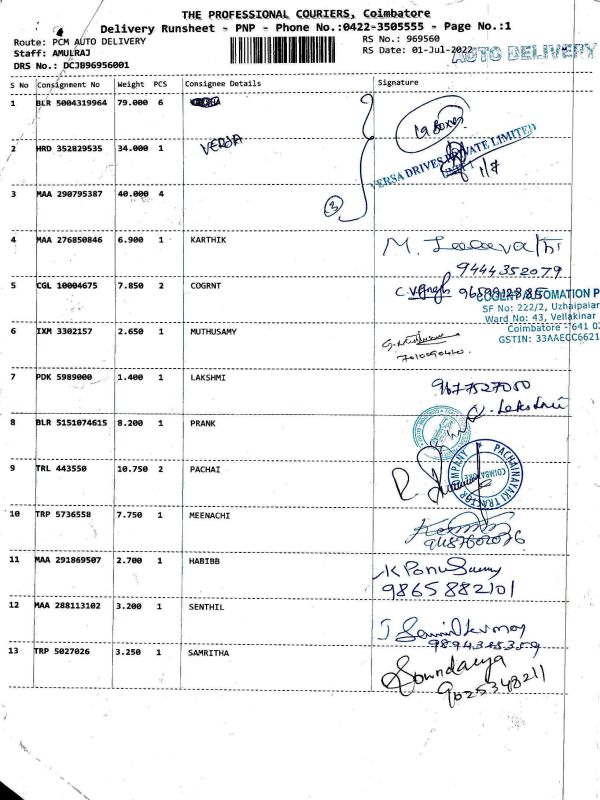 THE PROFESSIONAL COURIERS, Coimbatore
Delivery Runsheet - PNP - Phone No.:0422-3505555 - Page No.:1
Route: PCM AUTO DELIVERY
RS No.: 969560
Staff: AMULRAJ
RS Date: 01-Jul-2022
AUTO DELIVERY
DRS No.: DCJB96956001
S No Consignment No Weight PCS Consignee Details Signature
1 BLR 5004319964 79.000 6
19 Boxes
2 HRD 352829535 34.000 1 VERSA
VERSA DRIVES PRIVATE LIMITED
UNIT 1
1/7
3 MAA 290795387 40.000 4
3
4 MAA 276850846 6.900 1 KARTHIK
9444352079
5 CGL 10004675 7.850 2 COGRNT
SF No: 222/2, Uzhaipalar
Ward No: 43, Vellakinar
Coimbatore - 641 02
GSTIN: 33AAECC6621
6 IXM 3302157 2.650 1 MUTHUSAMY
7 PDK 5989000 1.400 1 LAKSHMI
9677527050
8 BLR 5151074615 8.200 1 PRANK
9 TRL 443550 10.750 2 PACHAI
PACHAINAYAKI TRACTOR COMPANY
COIMBATORE
10 TRP 5736558 7.750 1 MEENACHI
11 MAA 291869507 2.700 1 HABIBB
K Ponusamy
9865882101
12 MAA 288113102 3.200 1 SENTHIL
9894385359
13 TRP 5027026 3.250 1 SAMRITHA
Soundarya
9025348211